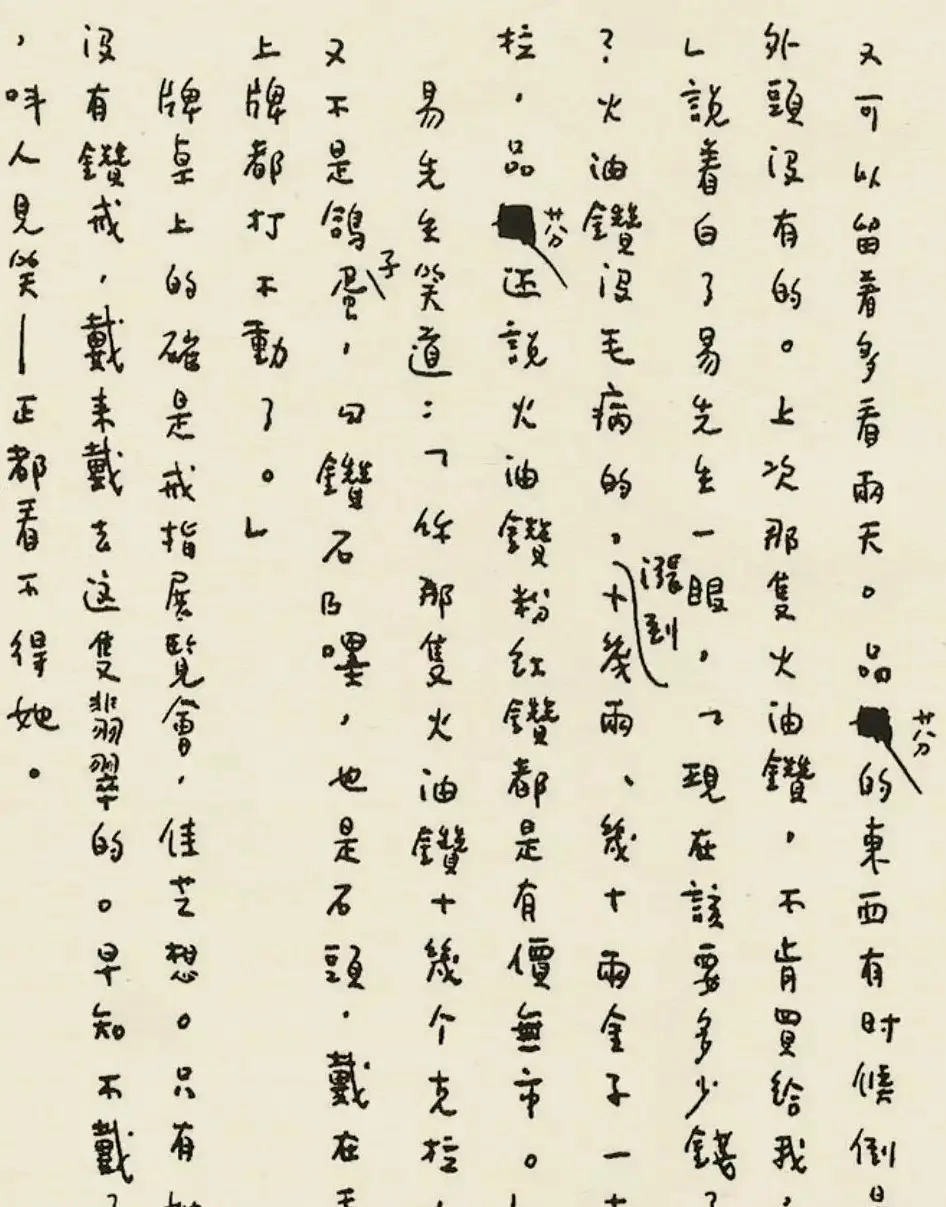 又可以留着多看兩天。品芬的東西有时候倒是
外頭没有的。上次那隻火油鑽，不肯買給我，
」說着白了易先生一眼，「現在該要多少錢了
？火油鑽没毛病的，漲到十幾兩、幾十兩金子一
拉，品芬还說火油鑽粉紅鑽都是有價無市。」
易先生笑道：「你那隻火油鑽十幾个克拉，
又不是鴿子蛋，『鑽石』嚜，也是石頭，戴在手
上牌都打不動了。」
牌桌上的確是戒指展覽會，佳芝想。只有她
没有鑽戒，戴來戴去这隻翡翠的。早知不戴了
，呌人見笑—正都看不得她。